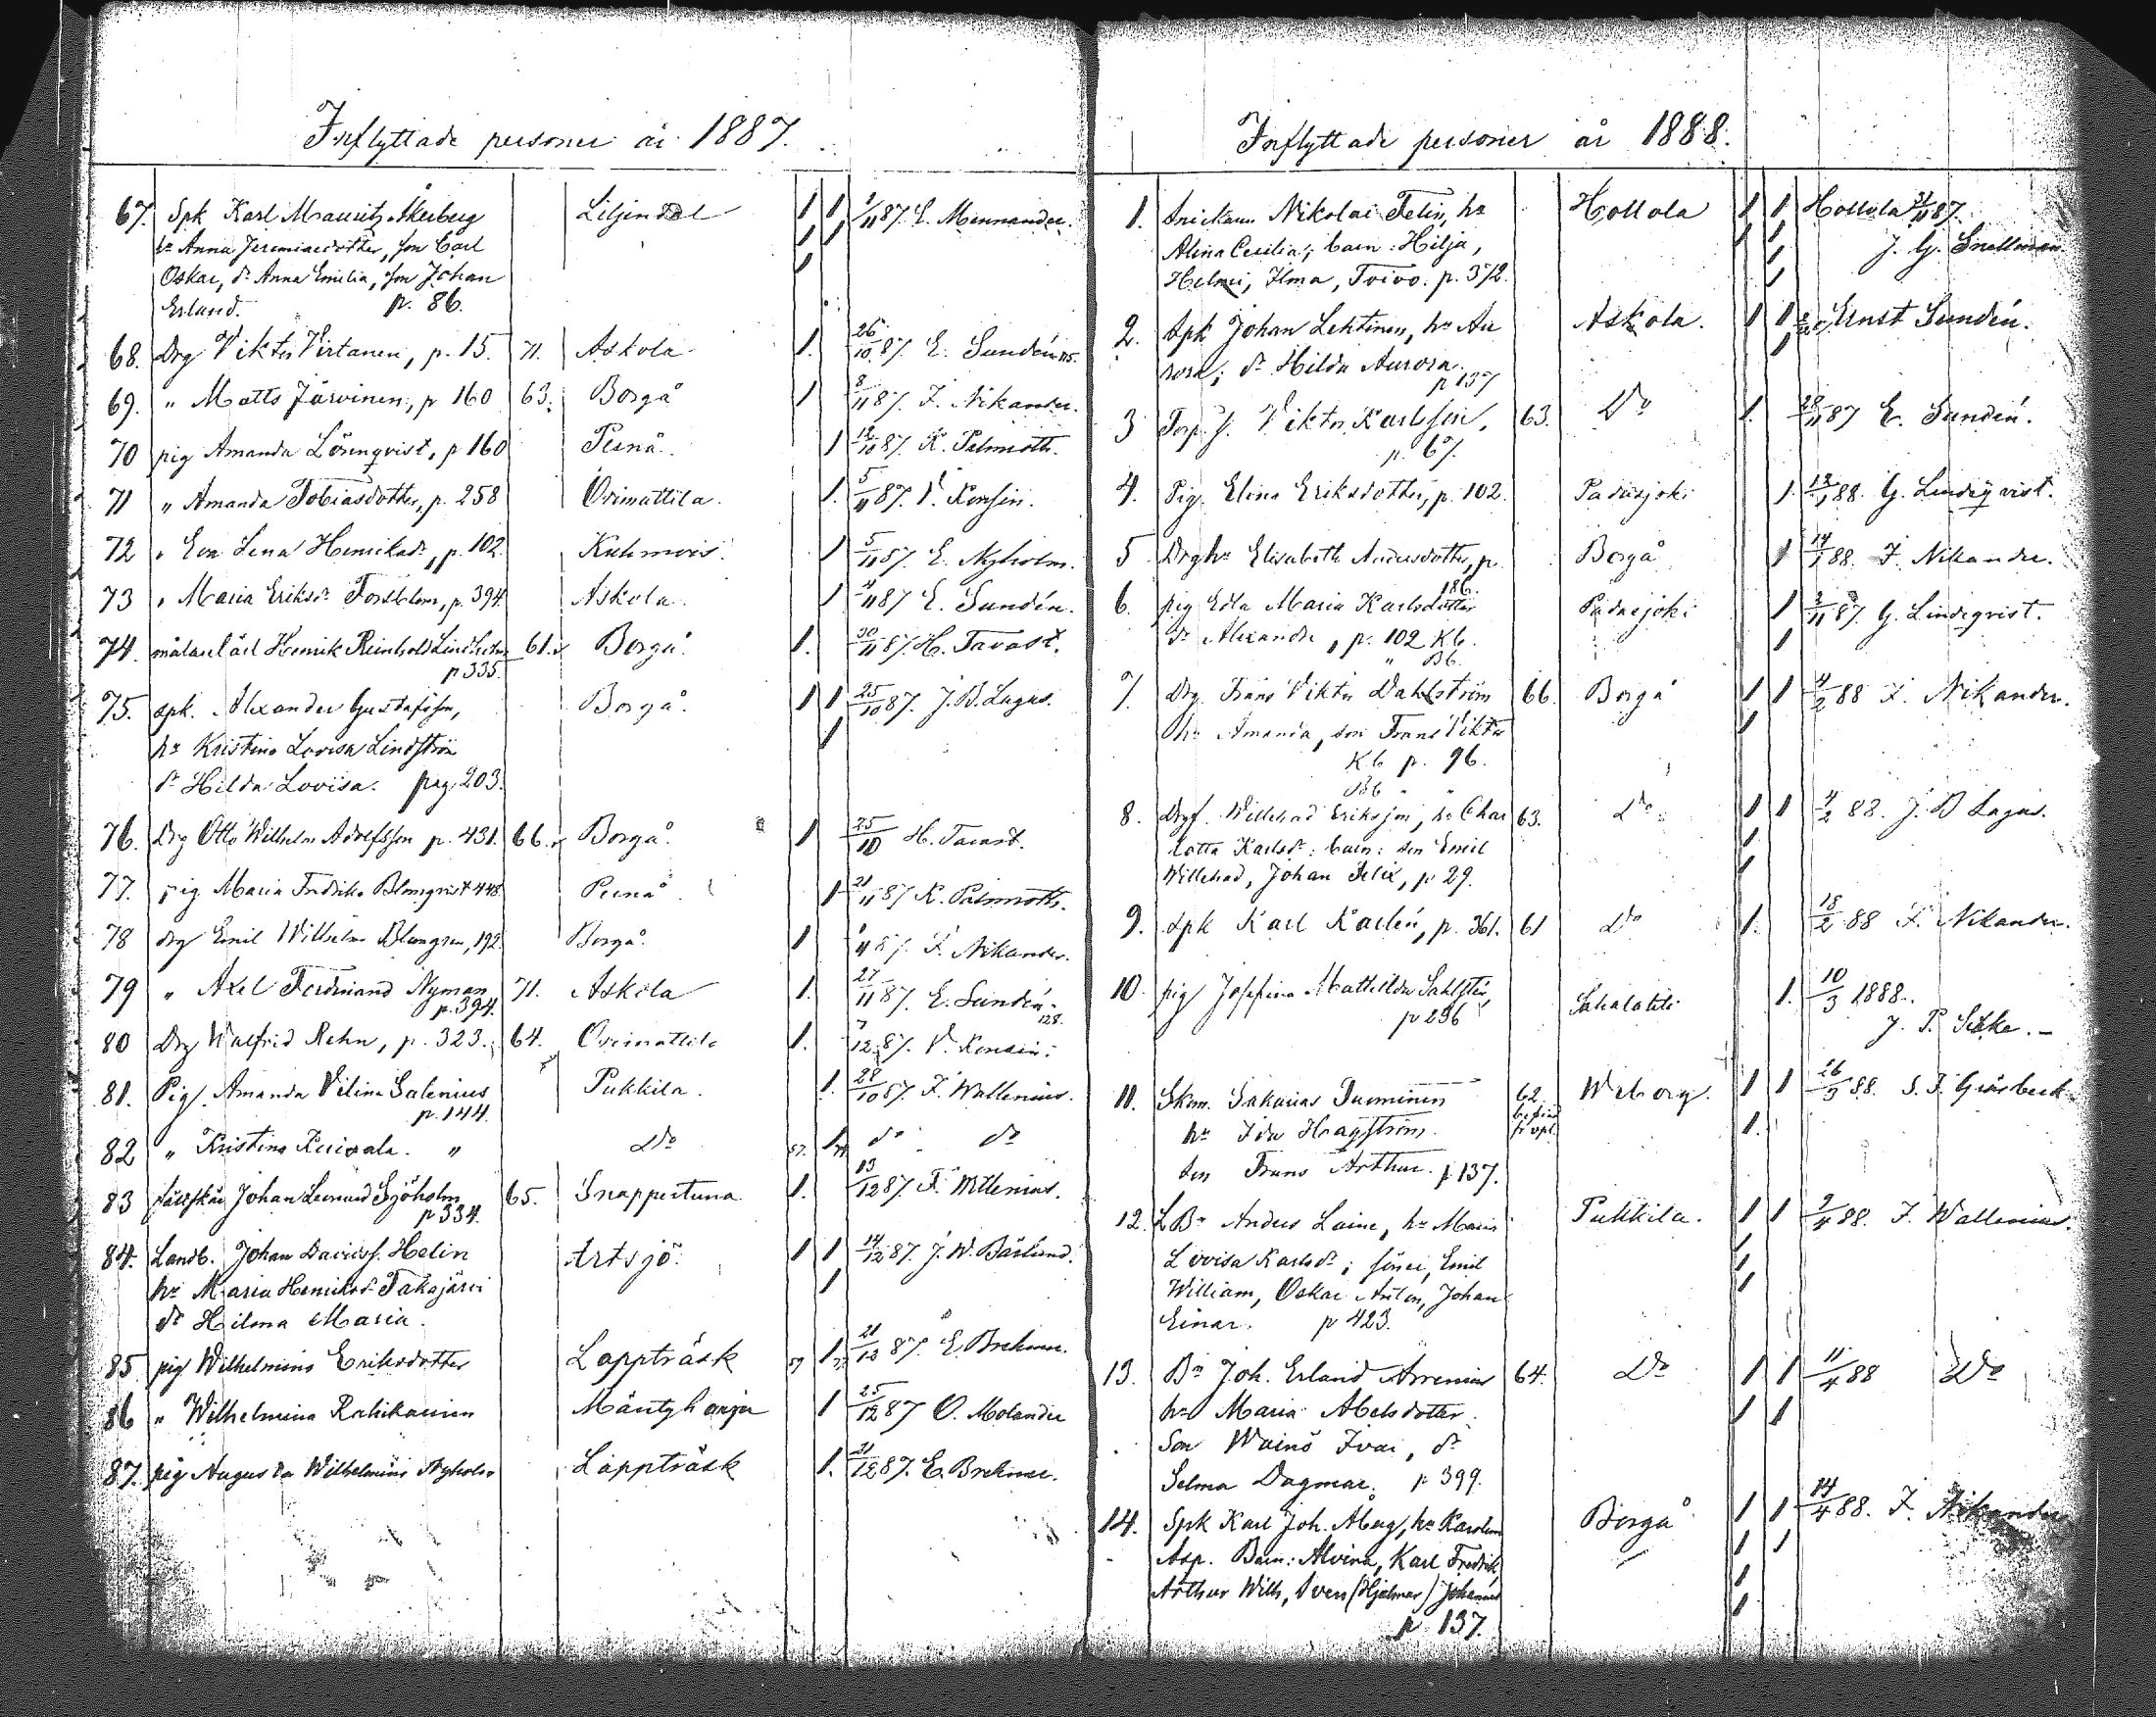 Inflyttade personer år 1887.
67. Spk Karl Mauritz Åkerberg Liljendal 1 1 1/11 87. E. Minnander.
hu Anna Jeremiaedotter, son Carl
Oskar, dr Anna Emilia, son Johan
Erland. p. 86.
68. Drg Viktor Virtanen, p. 15. 71. Askola 1. 26/10 87. E. Sundén
69. " Matts Järvinen, p 160 63. Borgå 1 8/11 87. F. Nikander.
70 pig Amanda Lönnqvist, p 160 Pernå. 1 12/10 87. K. Palmroth.
71 " Amanda Tobiasdotter, p. 258 Orimattila. 1. 5/11 87. V. Konsin.
72 " Eva Lena Henriksdr, p. 102. Kuhmois. 1 5/11 87. E. Nyholm.
73 " Maria Eriksdr Forsblom, p. 394. Askola. 1 4/11 87 E. Sundén.
74. målarelärl Henrik Reinhold Lindholm 61. Borgå. 1. 30/11 87. H. Tavast.
p 335.
75. spk. Alexander Gustafsson, Borgå. 1 1 25/10 87. J. B. Lagus.
hu Kristina Lovisa Lindström
dr Hilda Lovisa. pag. 203.
76. Drg Otto Wilhelm Adolfsson p. 431. 66. Borgå. 1 25/10 H. Tavast.
77. pig. Maria Fredrika Blomqvist 448 Pernå. 1 21/11 87 K. Palmroth.
78 drg Emil Wilhelm Blomgren, 192. Borgå. 1 87. F. Nikander.
79 " Axel Ferdinand Nyman 71. Askola 1. 27/11 87. E. Sundén.
p. 394. 128.
80 Drg Walfrid Rehn, p. 323. 64. Orimattila 1. 7/12 87. V. Konsin.
81. Pig. Amanda Vilina Salenius Pukkila. 1. 28/10 87. F. Wallenius.
p. 144.
82 " Kristina Kuivala. " Do 1 do do
83 Johan Leonard Sjöholm 65. Snappertuna 1. 13/12 87. F.
p 334.
84. Landb. Johan Davidsf. Helin Artsjö. 1 1 14/12 87. J. W. Bäcklund.
hu Maria Henriksdr Takajärvi
dr Hilma Maria.
85 pig Wilhelmina Eriksdotter Lappträsk 1. 21/12 87. E. Brehmer.
86 " Wilhelmina Rahikainen Mäntyharju 1 25/12 87 O. Molander
87. pig Augusta Wilhelmina Nyholm Lappträsk 1. 21/12 87. E. Brehmer.
Inflyttade personer år 1888.
1. Snickaren Nikolai Felin, hu Hollola 1 1 Hollola 87.
Alina Cecilia; barn: Hilja, J. G. Snellman
Helmi, Ilma, Toivo. p. 372.
2. Spk Johan Lehtinen, hu Au Askola. 1 1 Ernst Sundén.
rora; dr Hilda Aurora.
p 137
3 Torp. s. Viktor Karlsson, 63. Do 1. 28/11 87 E. Sundén.
p. 67.
4. Pig. Elina Eriksdotter, p. 102. Padasjoki 1. 13/1 88. G. Lindeqvist.
5. Drghu Elisabeth Andersdotter, p. Borgå 1 14/1 88. F. Nikander.
186.
6. pig Edla Maria Karlsdotter Padasjoki 1 2/11 87. G. Lindeqvist.
dr Alexandra, p. 102 Kb.
" Bb.
7. Drg. Frans Viktor Dahlström 66. Borgå 1 1 4/2 88 F. Nikander.
hu Amanda, son Frans Viktor
Kb p. 96.
Bb " "
8. Drgf. Willehad Eriksson, hu Char 63. Do 1 1 4/2 88. J. B Lagus.
lotta Karlsdr: barn: son Emil
Willehad, Johan Felix, p 29.
9. Spk Karl Karlén, p. 361. 61 Do 1. 18/2 88 F. Nikander.
10. pig Josefina Mathilda Sahlstén, Sahalahti 1. 10/3 1888.
p 296 J. P.
11. Skom. Sakarias Tuominen 62. Wiborg. 1 1 26/3 88. S. F. Gråsbeck.
hu Ida Hagström.
son Frans Arthur. p 137.
12. LBn Anders Laine, hu Maria Pukkila. 1 1 2/4 88. F. Wallenius.
Lovisa Karlsdr; söner, Emil
William, Oskar Anton, Johan
Einar. p 423.
13. Bn Joh. Erland Arrenius 64. Do 1 1 11/4 88 Do
hu Maria Abelsdotter.
Son Wäinö Ivar, dr
Selma Dagmar. p 399.
14. Spk Karl Joh. Åberg, hu Karolina Borgå 1 1 14/4 88. F. Nikander
Asp. Barn: Alvina, Karl Fredrik,
Arthur Wilh, Sven (Hjalmar) Johannes
p 137.